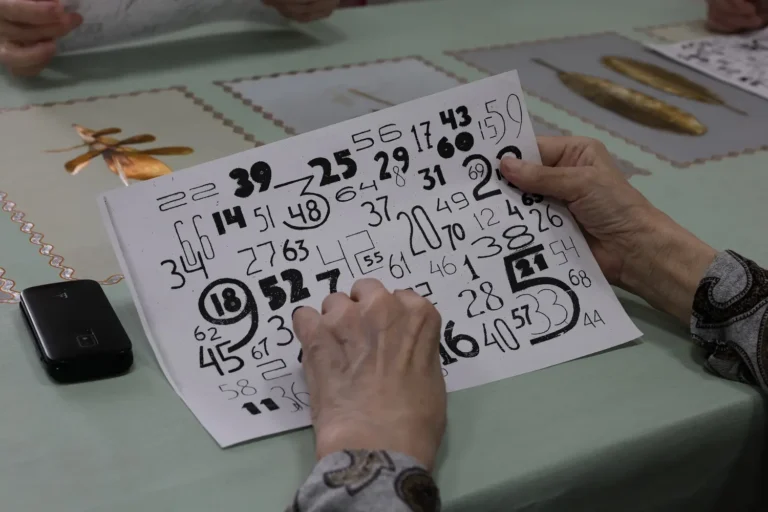 43
59
56
17
15
25
29
60
22
39
3
64
8
31
69
2
14
51
48
37
49
12
4
26
66
27
63
20
70
38
54
34
42
55
61
46
1
5
21
68
18
9
52
7
28
33
44
62
3
57
45
67
16
40
2
58
11
36